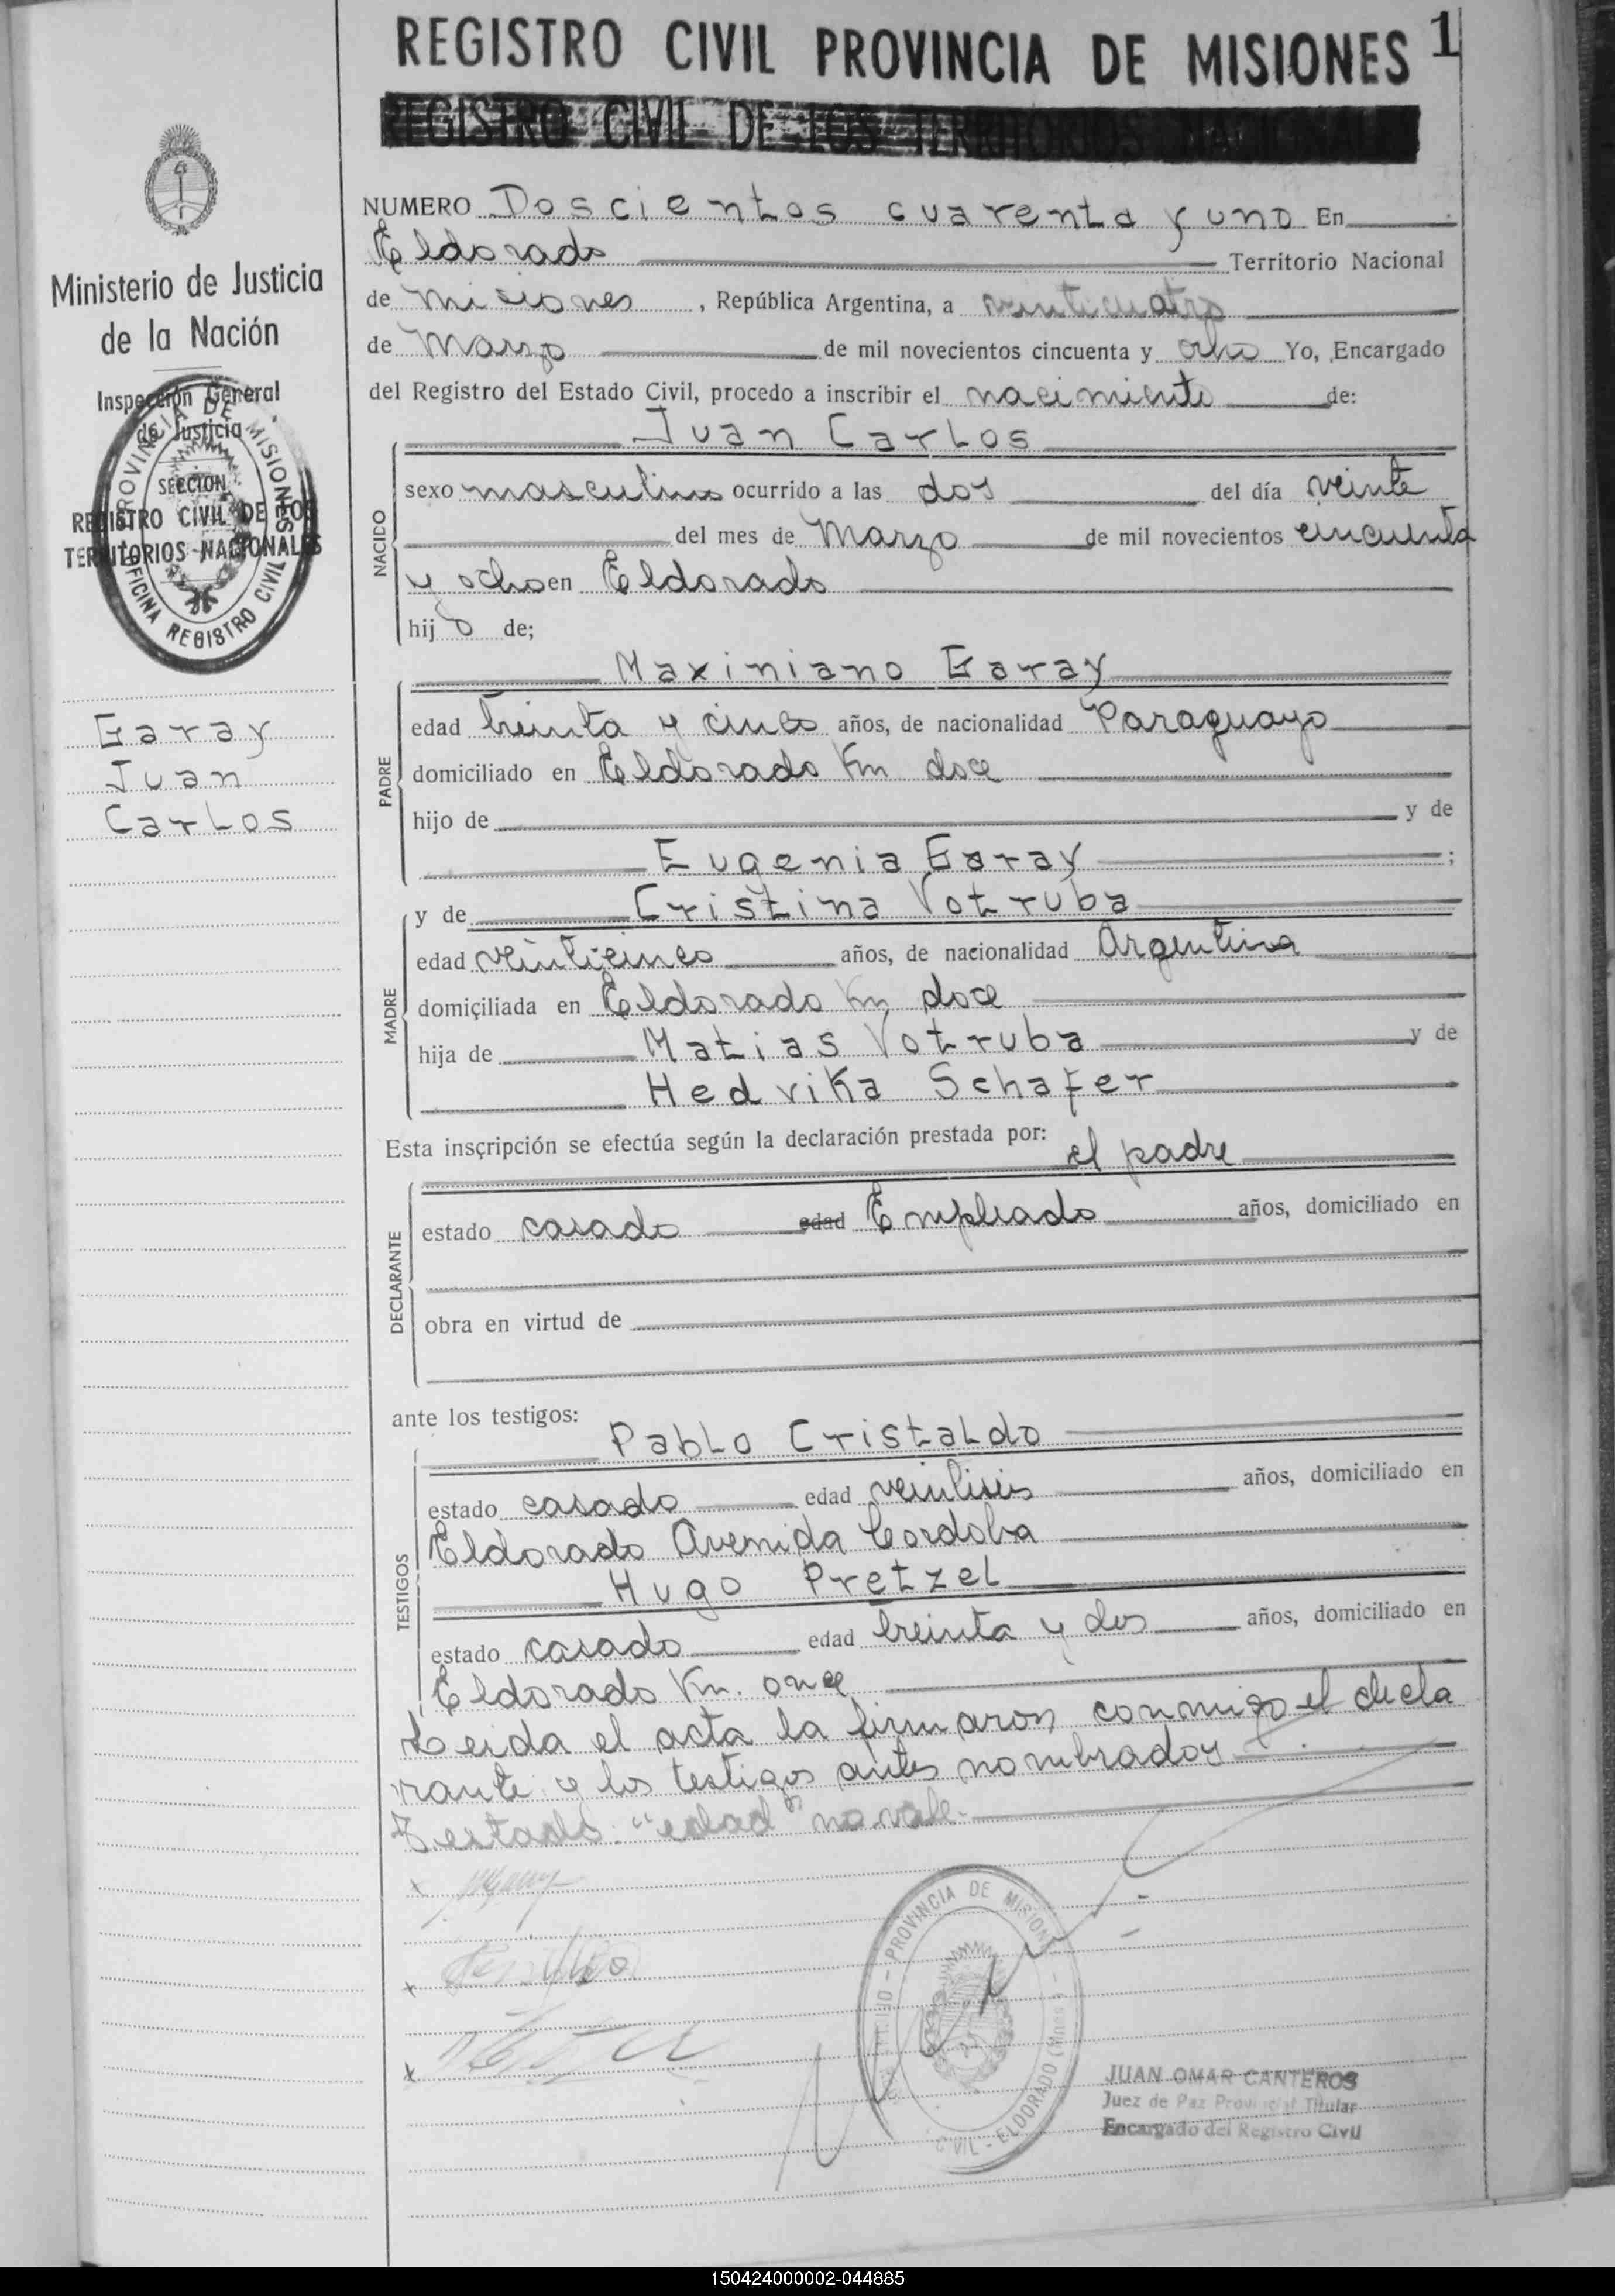 REGISTRO CIVIL PROVINCIA DE MISIONES 1
REGISTRO CIVIL DE LOS TERRITORIOS NACIONALES
Ministerio de Justicia
de la Nación
Inspección General
de Justicia
SECCION
REGISTRO CIVIL DE LOS
TERRITORIOS NACIONALES
PROVINCIA DE MISIONES
OFICINA REGISTRO CIVIL
Garay
Juan
Carlos
NUMERO Doscientos cuarenta y uno En
Eldorado Territorio Nacional
de Misiones, República Argentina, a veinticuatro
de Marzo de mil novecientos cincuenta y ocho Yo, Encargado
del Registro del Estado Civil, procedo a inscribir el nacimiento de:
NACIDO
Juan Carlos
sexo masculino ocurrido a las dos del día veinte
del mes de Marzo de mil novecientos cincuenta
y ocho en Eldorado
hijo de;
PADRE
Maximiano Garay
edad treinta y cinco años, de nacionalidad Paraguayo
domiciliado en Eldorado Km doce
hijo de y de
Eugenia Garay ;
MADRE
y de Cristina Votruba
edad veinticinco años, de nacionalidad Argentina
domiciliada en Eldorado Km doce
hija de Matias Votruba y de
Hedvika Schafer
Esta inscripción se efectúa según la declaración prestada por: el padre
DECLARANTE
estado casado edad Empleado años, domiciliado en
obra en virtud de
ante los testigos:
TESTIGOS
Pablo Cristaldo
estado casado edad veintiseis años, domiciliado en
Eldorado Avenida Cordoba
Hugo Pretzel
estado casado edad treinta y dos años, domiciliado en
Eldorado Km. once
Leida el acta la firmaron conmigo el decla
rante y los testigos antes nombrados
Testado: "edad" no vale.-
PROVINCIA DE MISIONES
CIVIL - ELDORADO
JUAN OMAR CANTEROS
Juez de Paz Provincial Titular
Encargado del Registro Civil
150424000002-044885